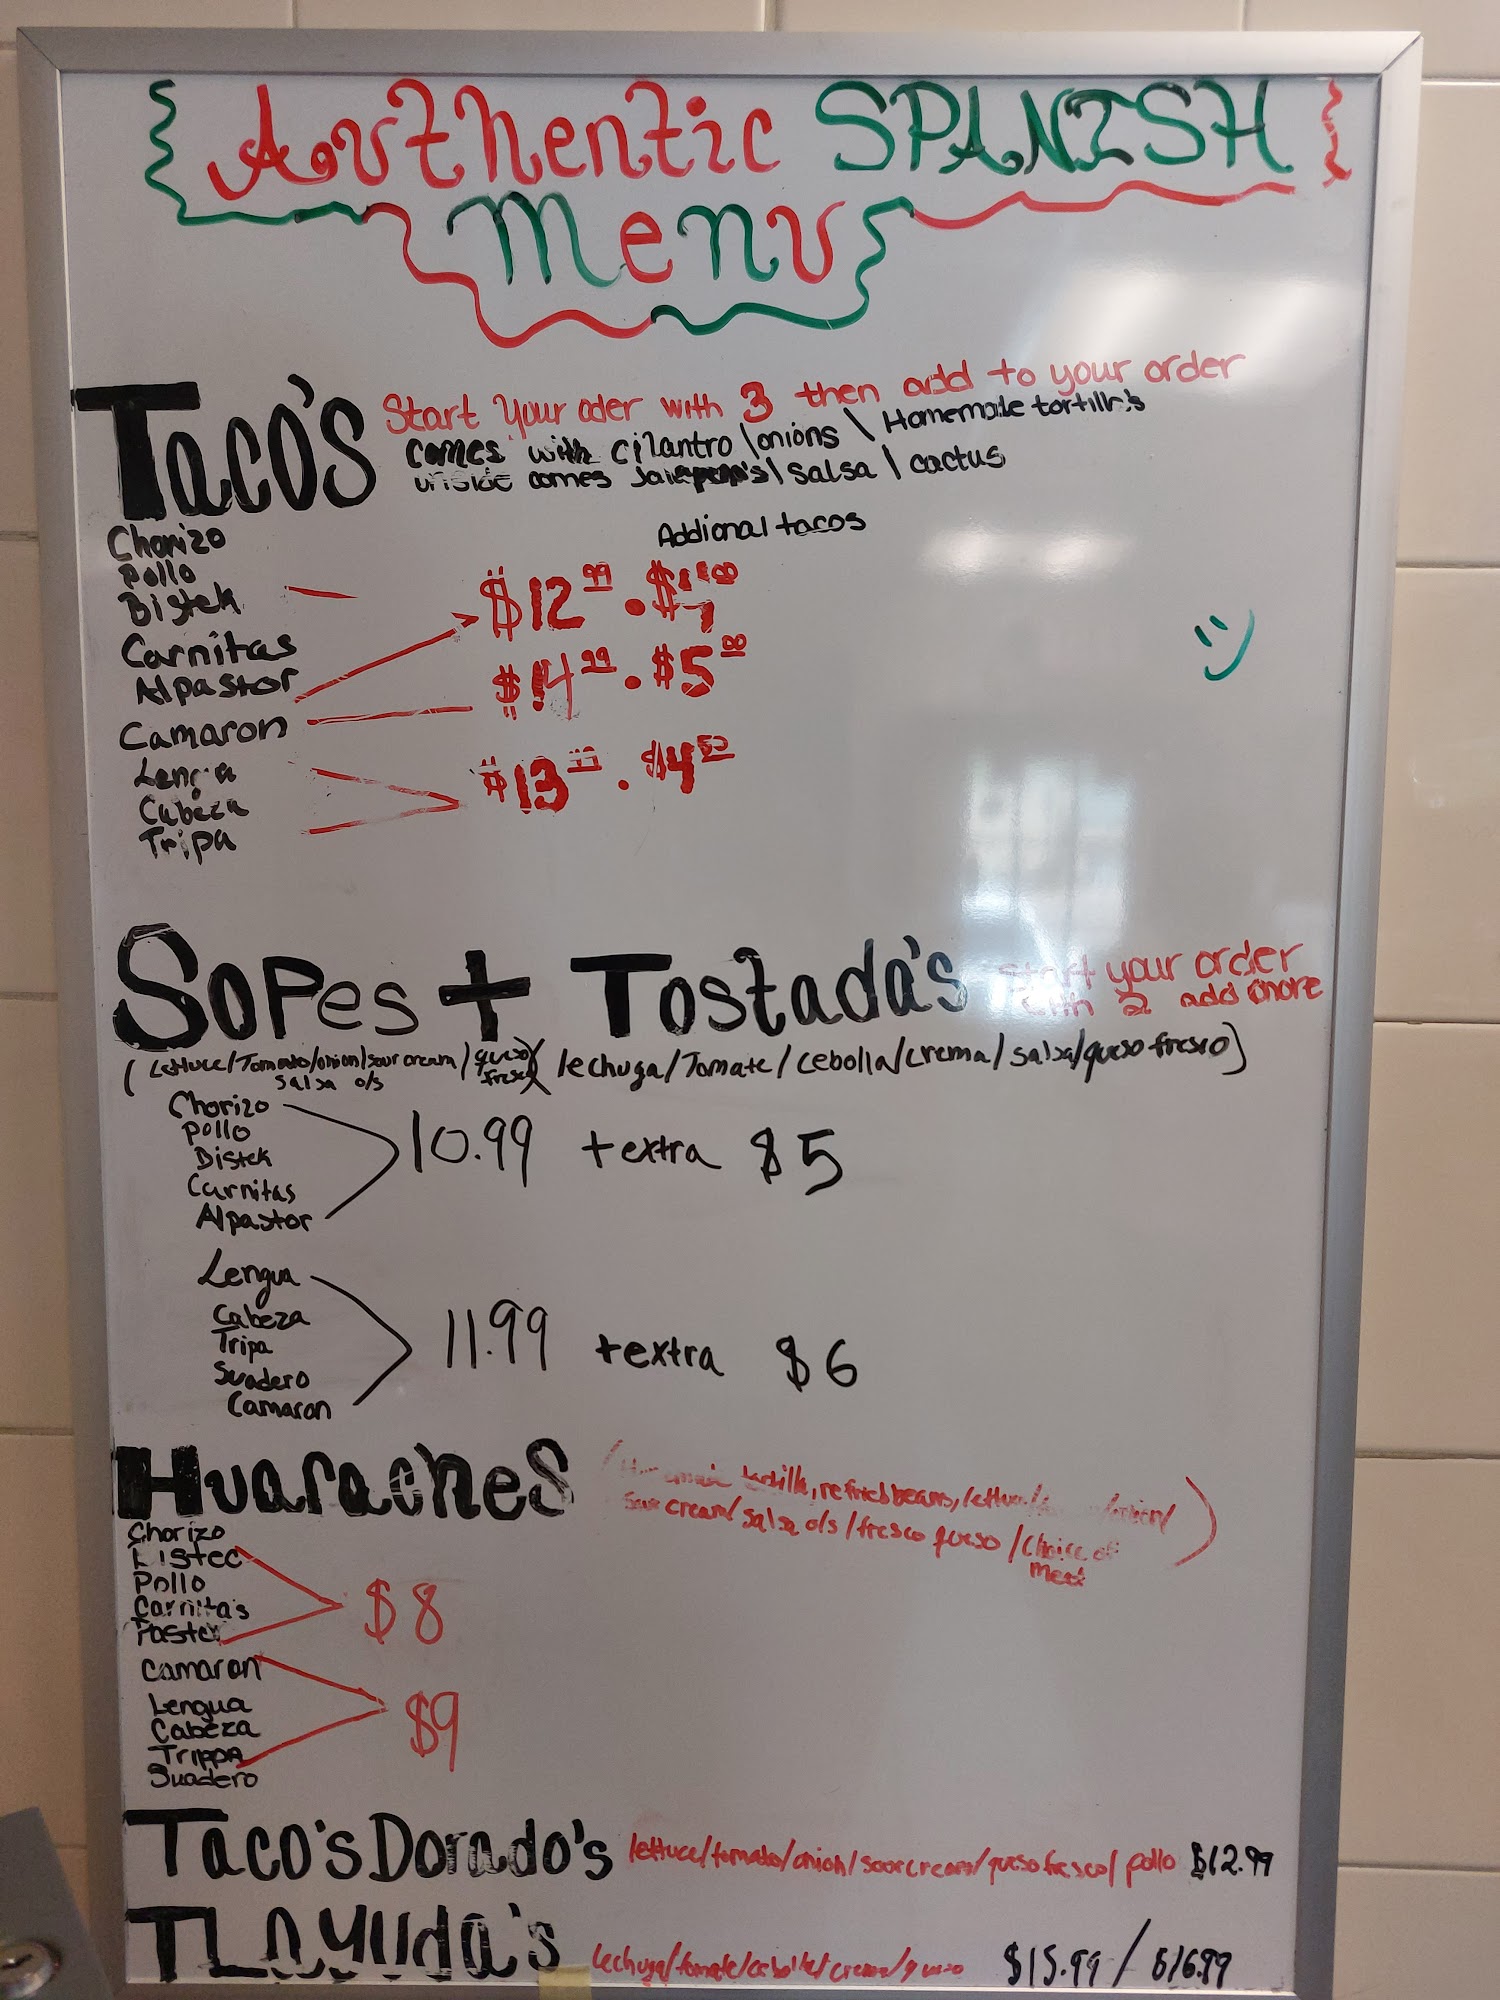 Authentic SPANISH
Menu
Taco's
Start Your oder with 3 then add to your order
comes with cilantro \onions \ Homemade tortilla's
inside comes \ salsa \ cactus
Addional tacos
Chorizo
Pollo
Bistek
Carnitas
Alpastor
$12.99 .
Camaron
$14.99 . $5.00
Lengua
Cabeza
Tripa
$13 . $4.50
Sopes + Tostada's
Start your order
with 2 add more
(Lettuce/Tomato/onion/sour cream/queso fresco
salsa o/s
)(lechuga/Tomate/cebolla/crema/salsa/queso fresco)
Chorizo
Pollo
Bistek
Carnitas
Alpastor
10.99 + extra $5
Lengua
Cabeza
Tripa
Suadero
Camaron
11.99 + extra $6
Huaraches
(Homemade tortilla, refried beans, lettuce/ /onion/
sour cream/salsa o/s/fresco queso/choice of
meat)
Chorizo
Bistec
Pollo
Carnita's
Pastor
$8
Camaron
Lengua
Cabeza
Trippa
Suadero
$9
Taco's Dorado's lettuce/tomato/onion/sourcream/queso fresco/pollo $12.99
TLayuda's lechuga/tomate/cebolla/crema/queso $15.99 / $16.99